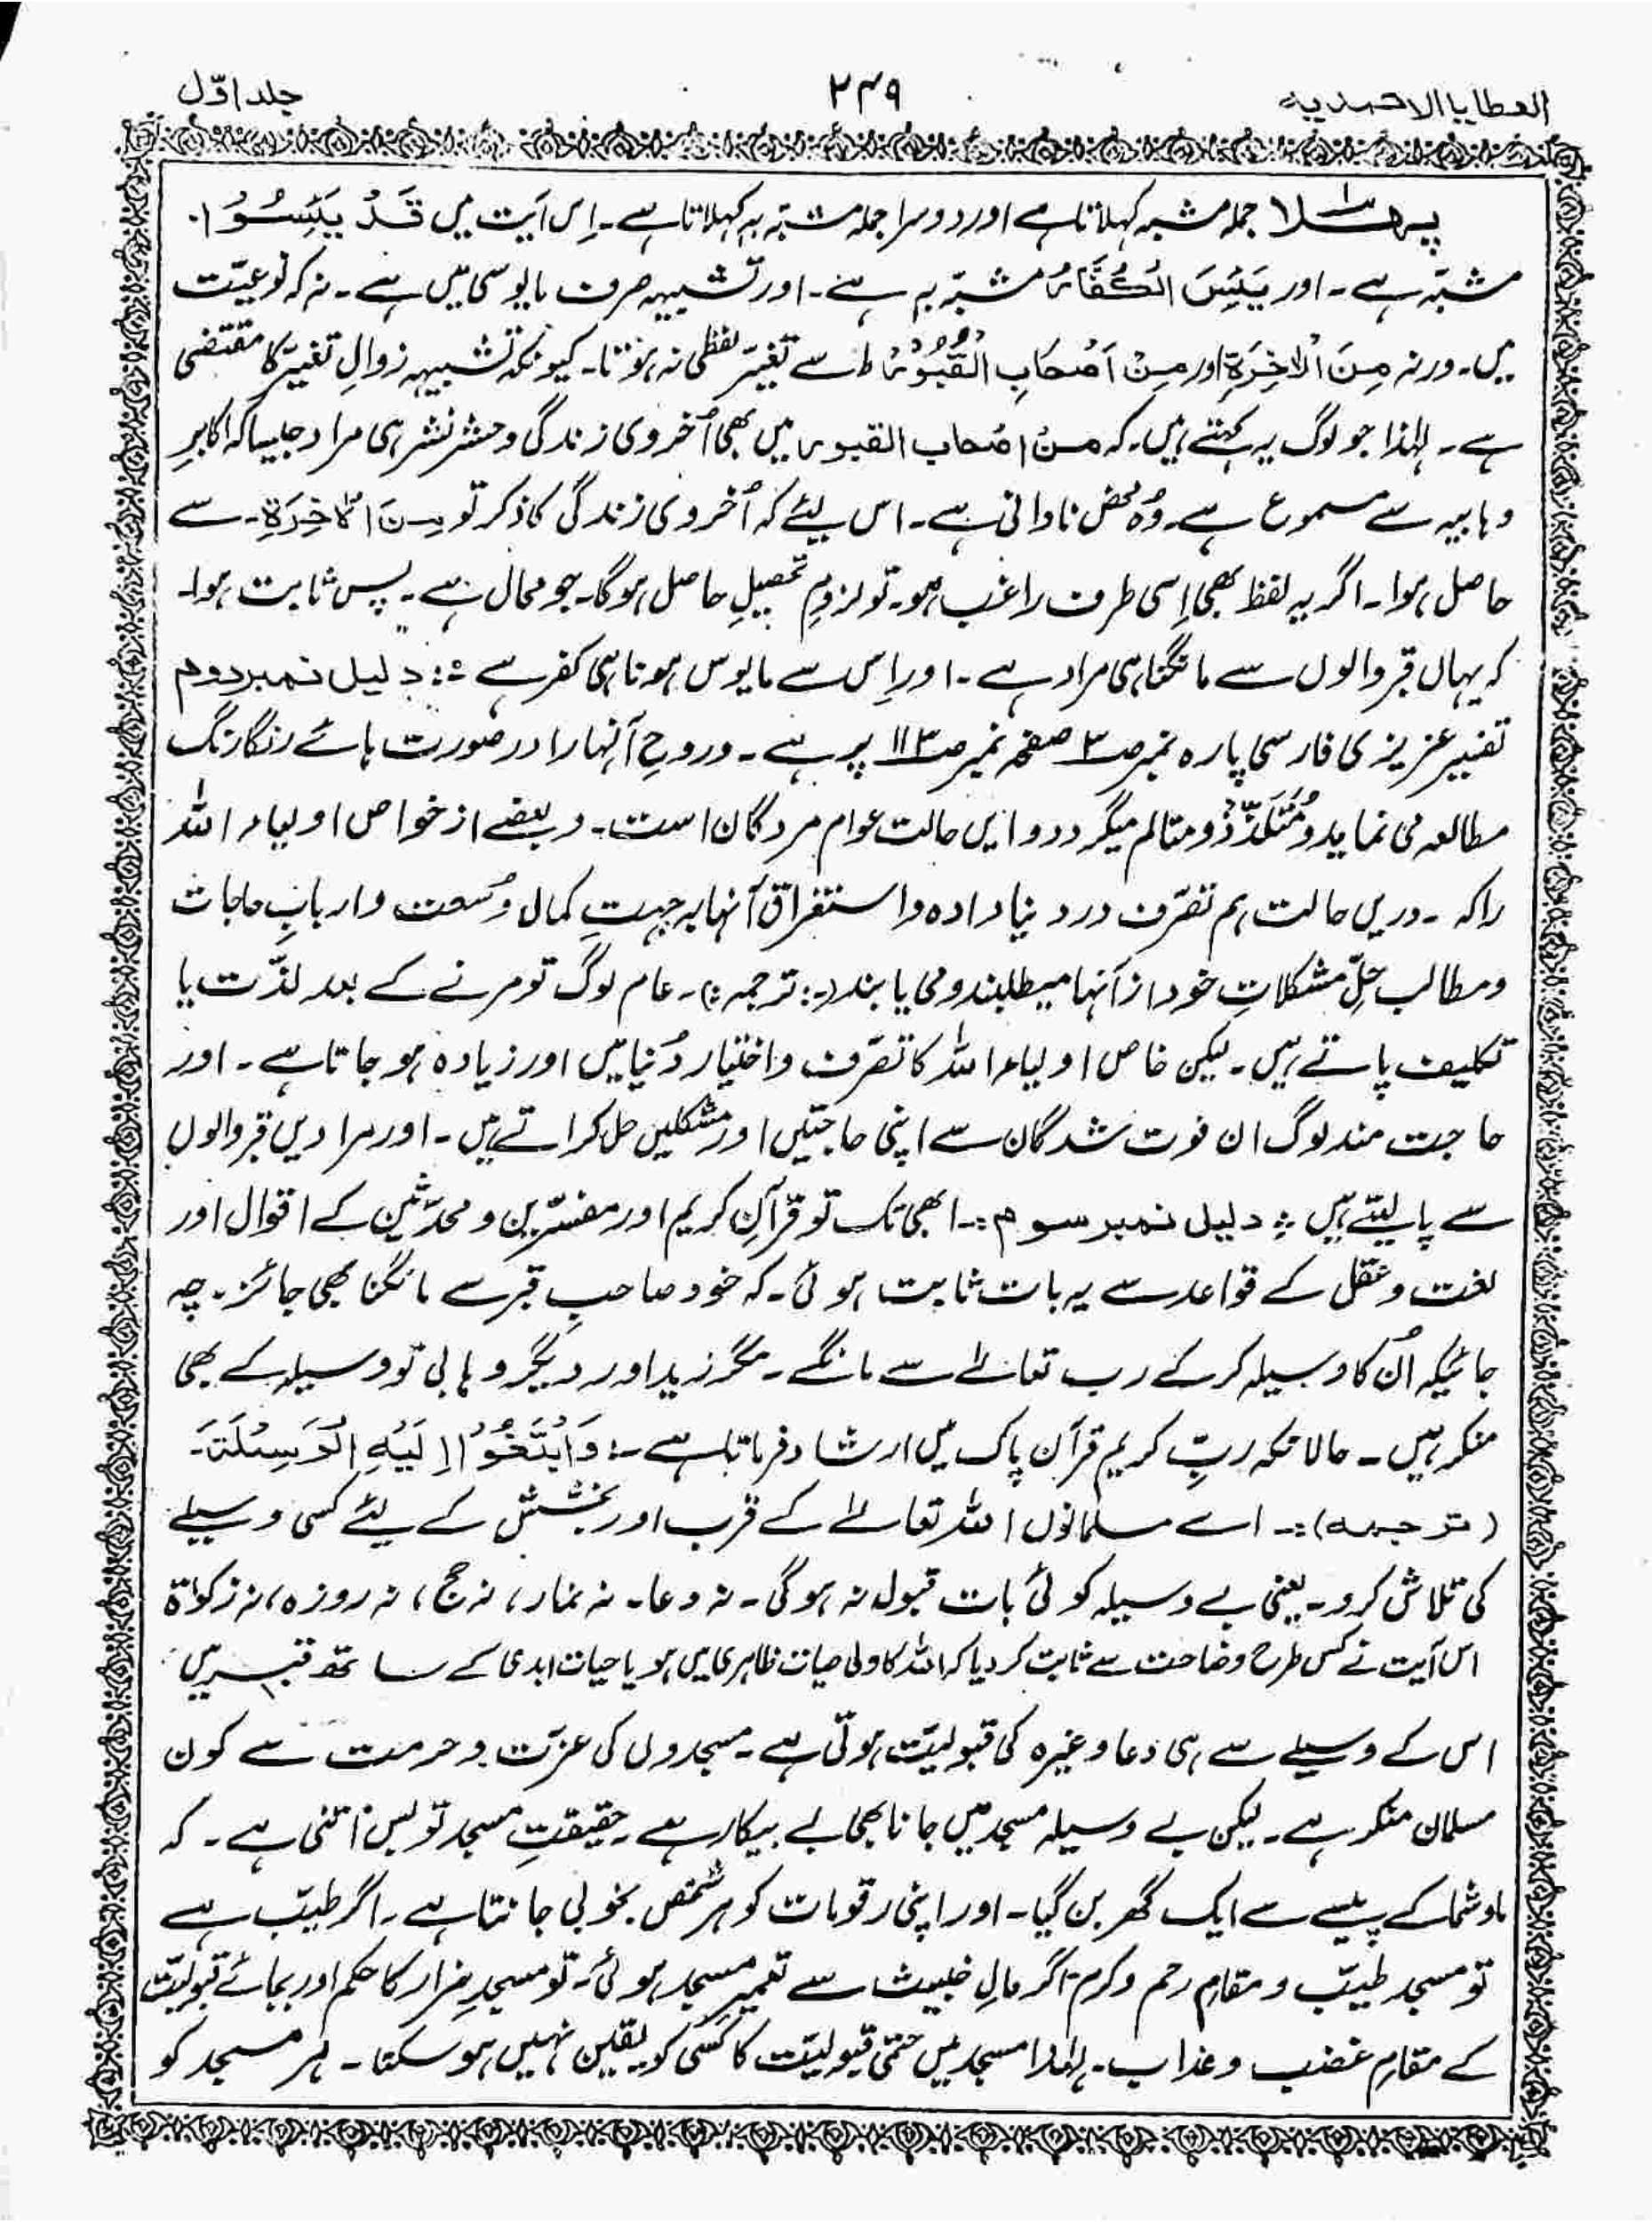 العطایا الاحمدیہ
۲۴۹
جلد اوّل
پہلا جملہ مشبہ کہلاتا ہے اور دوسرا جملہ مشبّہ بہٖ کہلاتا ہے۔ اِس آیت میں قَدْ یَئِسُوْا۔
مشبّہ ہے۔ اور یَئِسَ الْکُفَّارُ مشبّہ بہٖ ہے۔ اور تشبیہہ صرف مایوسی میں ہے۔ نہ کہ نوعیّت
میں۔ ورنہ مِنَ الْاٰخِرَۃِ اور مِنْ اَصْحَابِ الْقُبُوْرِ ط سے تغیّر لفظی نہ ہوتا۔ کیونکہ تشبیہہ زوالِ تغیّر کا مقتضی
ہے۔ لہٰذا جو لوگ یہ کہتے ہیں۔ کہ مِنْ اصْحاب القبور میں بھی اُخروی زندگی و حشر نشر ہی مراد جیسا کہ اکابرِ
وہابیہ سے مسموع ہے۔ وُہ محض نادانی ہے۔ اس لیئے کہ اُخروی زندگی کا ذکر تو مِنَ الْاٰخِرَۃِ۔ سے
حاصل ہوا۔ اگر یہ لفظ بھی اِسی طرف راغب ہو۔ تو لزومِ تحصیلِ حاصل ہوگا۔ جو محال ہے۔ پس ثابت ہوا۔
کہ یہاں قبر والوں سے مانگنا ہی مراد ہے۔ اور اِس سے مایوس ہونا ہی کفر ہے ؞: دلیل نمبر دوم
تفسیر عزیزی فارسی پارہ نمبر صـ۳ صفحہ نمبر صـ۱۱۳ پر ہے۔ و روحِ آنہا را در صورت ہائے رنگا رنگ
مطالعہ می نماید و مُتَلَذِّذ و متالم میگردد و ایں حالت عوام مردگان است۔ و بعضے از خواص اولیاء اللہ
را کہ ۔ دریں حالت ہم تصرّف در دنیا دادہ و استغراق آنہا بہ جہتِ کمال وُسعت و اربابِ حاجات
و مطالب حلِّ مشکلاتِ خود از آنہا میطلبند و می یابند (؞: ترجمہ؞)۔ عام لوگ تو مرنے کے بعد لذّت یا
تکلیف پاتے ہیں۔ لیکن خاص اولیاء اللہ کا تصرّف و اختیار دُنیا میں اور زیادہ ہو جاتا ہے۔ اور
حاجت مند لوگ ان فوت شدگان سے اپنی حاجتیں اور مشکلیں حل کراتے ہیں۔ اور مرادیں قبر والوں
سے پا لیتے ہیں ؞ دلیل نمبر سوم:۔ ابھی تک تو قرآنِ کریم اور مفسّرین و محدّثین کے اقوال اور
لغت و عقل کے قواعد سے یہ بات ثابت ہوئی۔ کہ خود صاحبِ قبر سے مانگنا بھی جائز۔ چہ
جائیکہ اُن کا وسیلہ کر کے رب تعالےٰ سے مانگے۔ مگر زید اور دیگر وہابی تو وسیلہ کے بھی
منکر ہیں۔ حالانکہ ربِّ کریم قرآن پاک میں ارشاد فرماتا ہے ؞: وَابْتَغُوْا اِلَیْہِ الْوَسِیْلَۃَ۔
(ترجمہ):۔ اے مسلمانوں اللہ تعالےٰ کے قرب اور بخشش کے لیئے کسی وسیلے
کی تلاش کرو۔ یعنی بے وسیلہ کوئی بات قبول نہ ہوگی۔ نہ دعا۔ نہ نماز، نہ حج، نہ روزہ، نہ زکوٰۃ
اس آیت نے کس طرح وضاحت سے ثابت کر دیا کہ اللہ کا ولی حیات ظاہری میں ہو یا حیات ابدی کے ساتھ قبر میں
اس کے وسیلے سے ہی دعا وغیرہ کی قبولیّت ہوتی ہے۔ مسجدوں کی عزّت و حرمت سے کون
مسلمان منکر ہے۔ لیکن بے وسیلہ مسجد میں جانا بھی بے بیکار ہے۔ حقیقتِ مسجد تو بس اتنی ہے۔ کہ
ماوشما کے پیسے سے ایک گھر بن گیا۔ اور اپنی رقومات کو ہر شخص بخوبی جانتا ہے۔ اگر طیّب ہے
تو مسجد طیّب و مقامِ رحم و کرم اگر مالِ خبیث سے تعمیرِ مسجد ہوئی۔ تو مسجدِ ضرار کا حکم اور بجائے قبولیّت
کے مقامِ غضب و عذاب۔ لہٰذا مسجد میں حتمی قبولیّت کا کسی کو یقین نہیں ہو سکتا۔ ہر مسجد کو